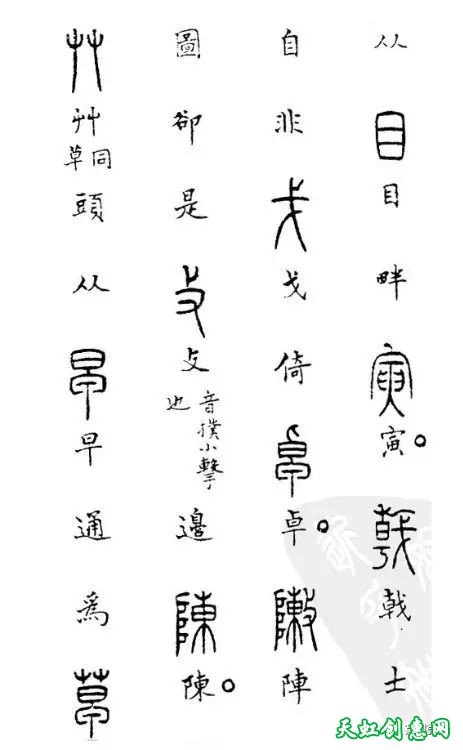 从目目畔寅寅。戟戟士
自非戈戈倚卓卓。敶陣
圖卻是攴攴音撲小擊也邊陳陳。
艸艸同草頭从早早通爲草
天虹创意网